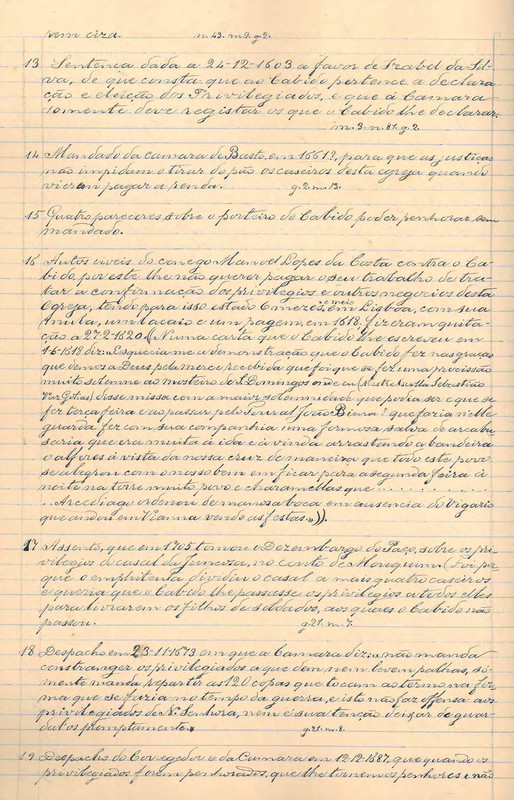 sem cira. n. 43. m. 9. g. 2.
13 Sentença dada a 24-12-1603 a favor de Izabel da Sil-
va, de que consta que ao Cabido pertence a declara
ção e eleição dos Privilegiados, e que á Camara
somente deve registar os que o Cabido lhe declarar.
m. 3. n. 87. g. 2.
14 Mandado da camara de Basto, em 1661?, para que as justiças
não impidam o tirar do pão os caseiros desta egreja quando
vierem pagar a renda. g. 2. m. 13.
15 Quatro pareceres sobre o porteiro do Cabido poder penhorar sem
mandado.
16 Autos civeis do conego Manoel Lopes da Costa contra o Ca-
bido, por este lhe não querer pagar o seu trabalho de tra-
tar a confirmação dos privilegios e outros negocios desta
Egreja, tendo para isso estado 6 mezes e meio em Lisboa, com sua
mula, um lacaio e um pagem, em 1618. fizeram quita-
ção a 27-2-1620. (N'uma carta que o Cabido lhe escreveu em
1618 diz: « Esquecia-me a demonstração que o Cabido fez nas graças
que demos a Deus pela merce recebida que foi que se fez uma procissão
muito solemne ao mosteiro de S. Domingos onde eu (Mestre
) disse missa com a maior solemnidade que podia ser e que se
fez terça feira e ao passar pelo Toural João Bi
guarda fez com sua companhia uma fermosa salva de arcabu-
saria que era muita á ida e á vinda arrastando a bandeira
o alferes á vista da nossa cruz de maneira que todo este povo
se alegrou com o nosso bem em ficar para a segunda feira á
noite na torre muito povo e charamellas que . . . . . . . .
. . Arcediago ordenou de manosa boca em ausencia do Vigario
que andou em Vianna vendo as festas.»)).
17 Assento, que em 1705 tomou o Dezembargo do Paço, sobre os pri-
vilegios do casal da , no couto de Mouquim. (Foi por
que o emphiteuta dividiu o casal a mais quatro caseiros
e queria que o Cabido lhe passasse os privilegios a todos elles
para livrarem os filhos de soldados, aos quaes o Cabido não
passou. g. 27. m. 7.
18 Despacho em 23-11-1673 em que a Camara diz: « não manda
constranger os privilegiados a que dem nem levem palhas, só-
mente manda repartir as 120 copas que tocam ao termo na for-
ma que se fazia no tempo da guerra, e isto não faz offensa aos
privilegiados de N. Senhora, nem é sua tenção deixar de guar-
dal-os promptamente.» g. 21. m. 8.
19 Despacho do Corregedor e da Camara em 12-12-1687, que quando os
privilegiados forem penhorados, que lhe tornem os penhores e não